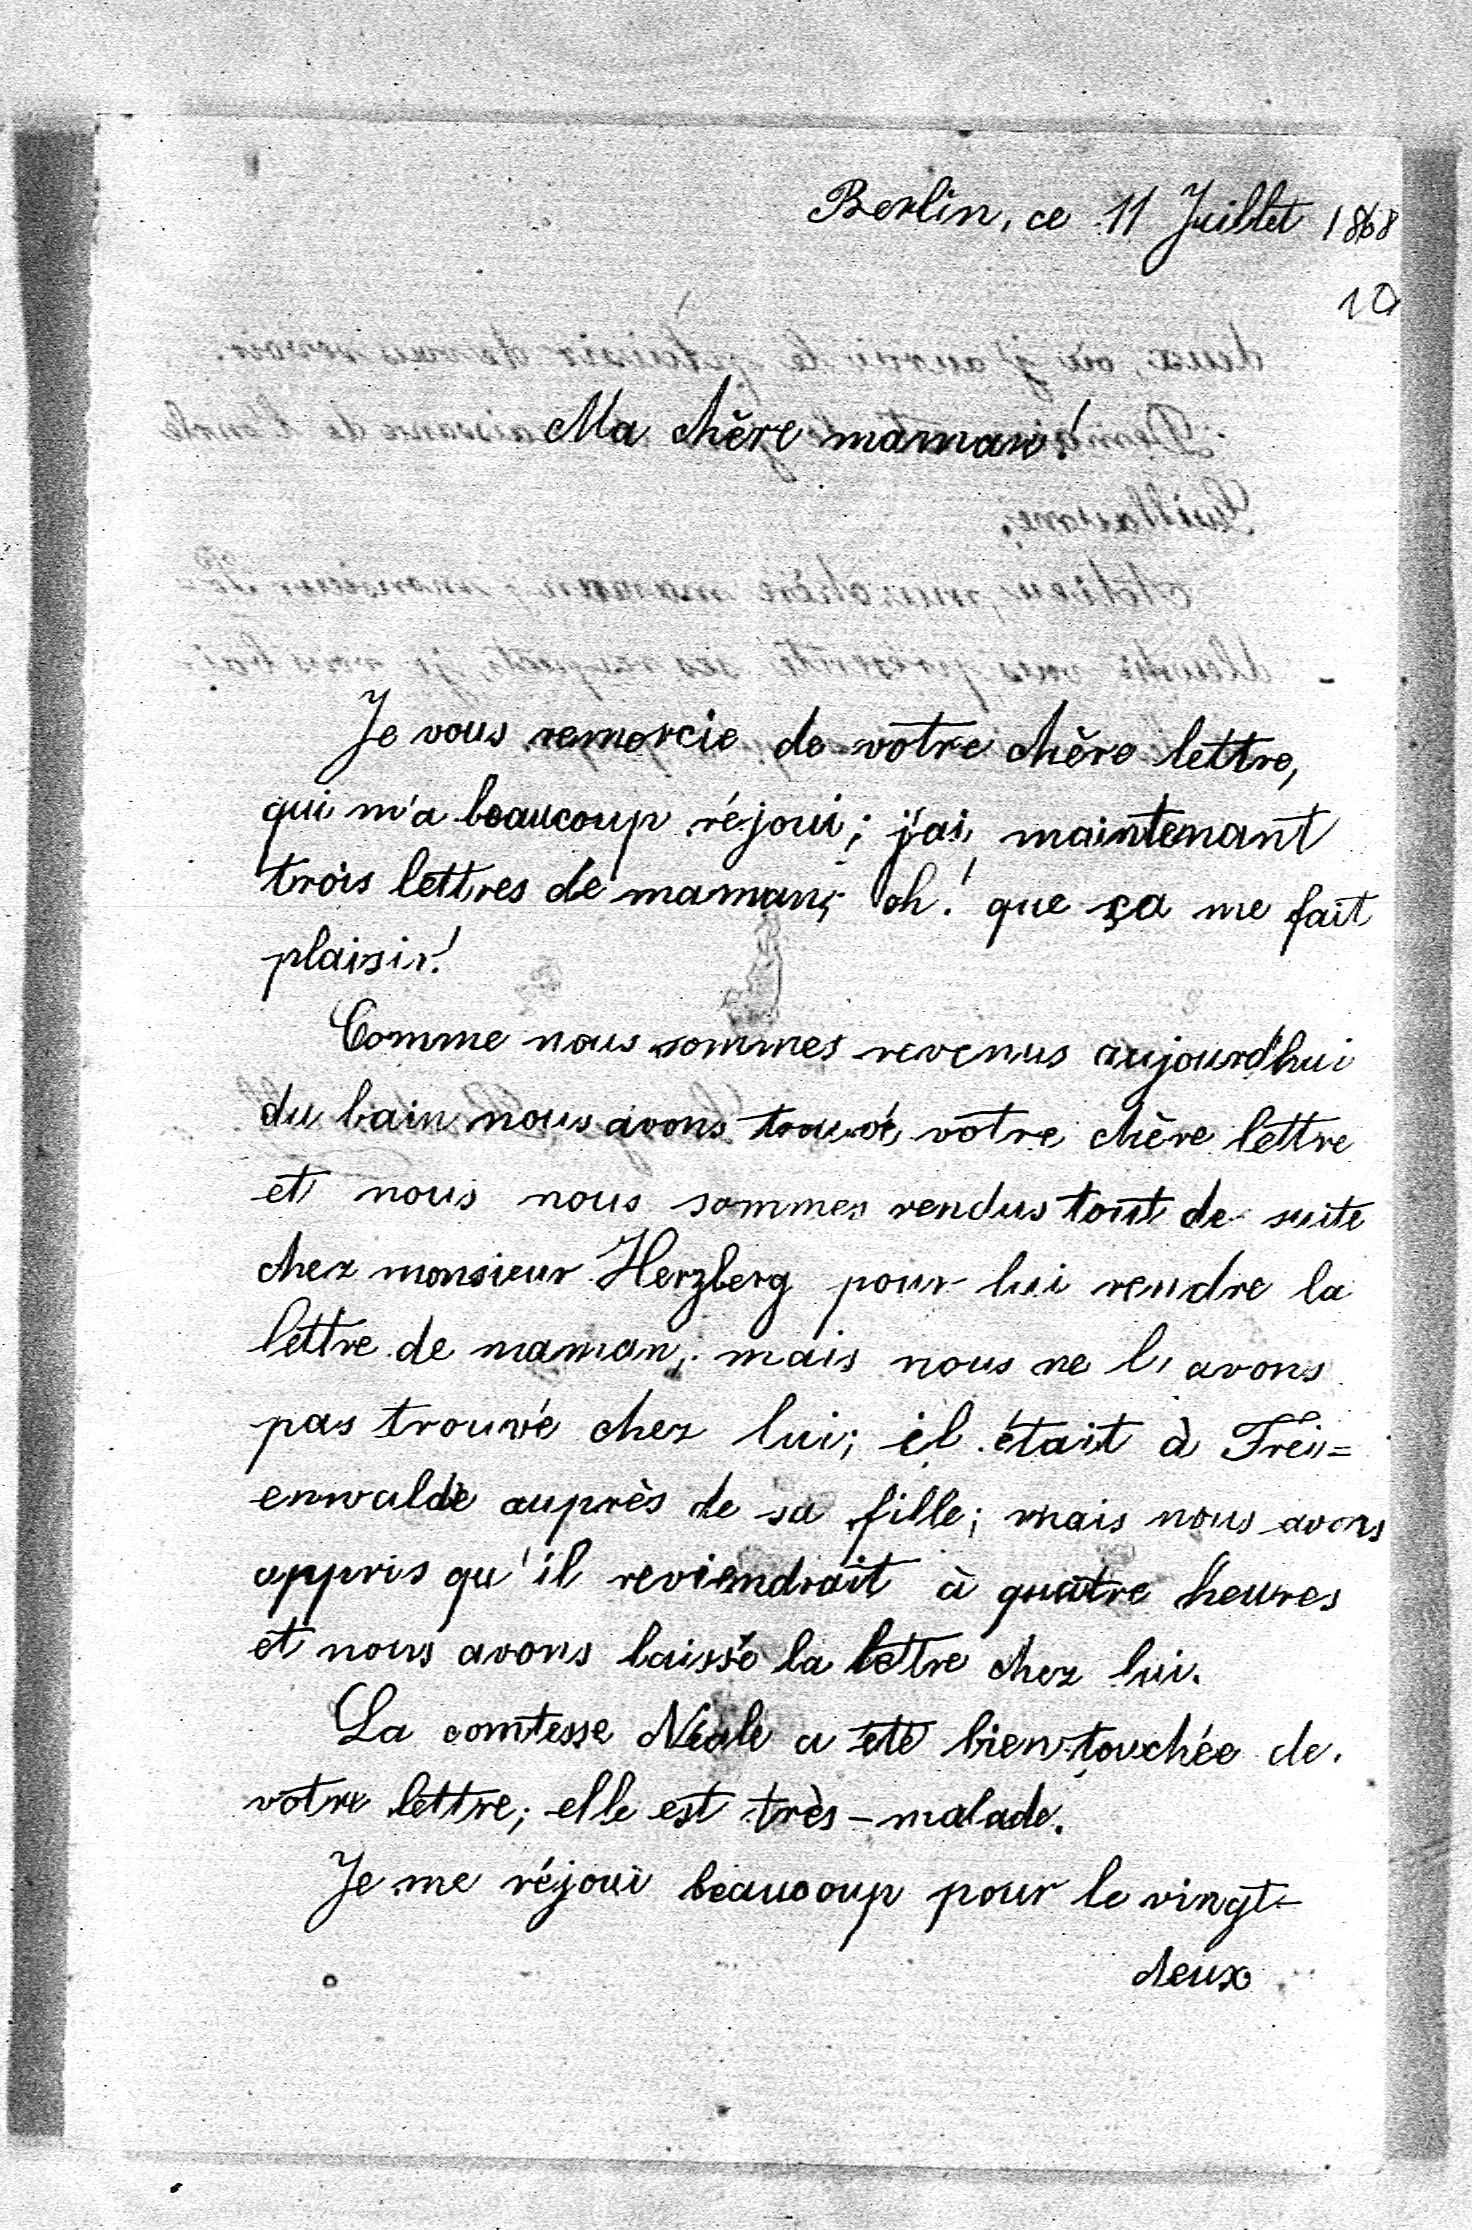 Berlin, ce 11 Juillet 1868
10
Ma chère maman!
Je vous remercie de votre chère lettre,
qui m'a beaucoup réjoui; j'ai maintenant
trois lettres de maman; oh! que ça me fait
plaisir!
Comme nous sommes revenus aujourd'hui
du bain nous avons trouvé votre chère lettre
et nous nous sommes rendus tout de suite
chez monsieur Herzberg pour lui rendre la
lettre de maman; mais nous ne l'avons
pas trouvé chez lui; il était à Frei=
enwalde auprès de sa fille; mais nous avons
appris qu'il reviendrait à quatre heures
et nous avons laissé la lettre chez lui.
La comtesse Néale a été bien touchée de
votre lettre; elle est très-malade.
Je me réjoui beaucoup pour le vingt-
deux